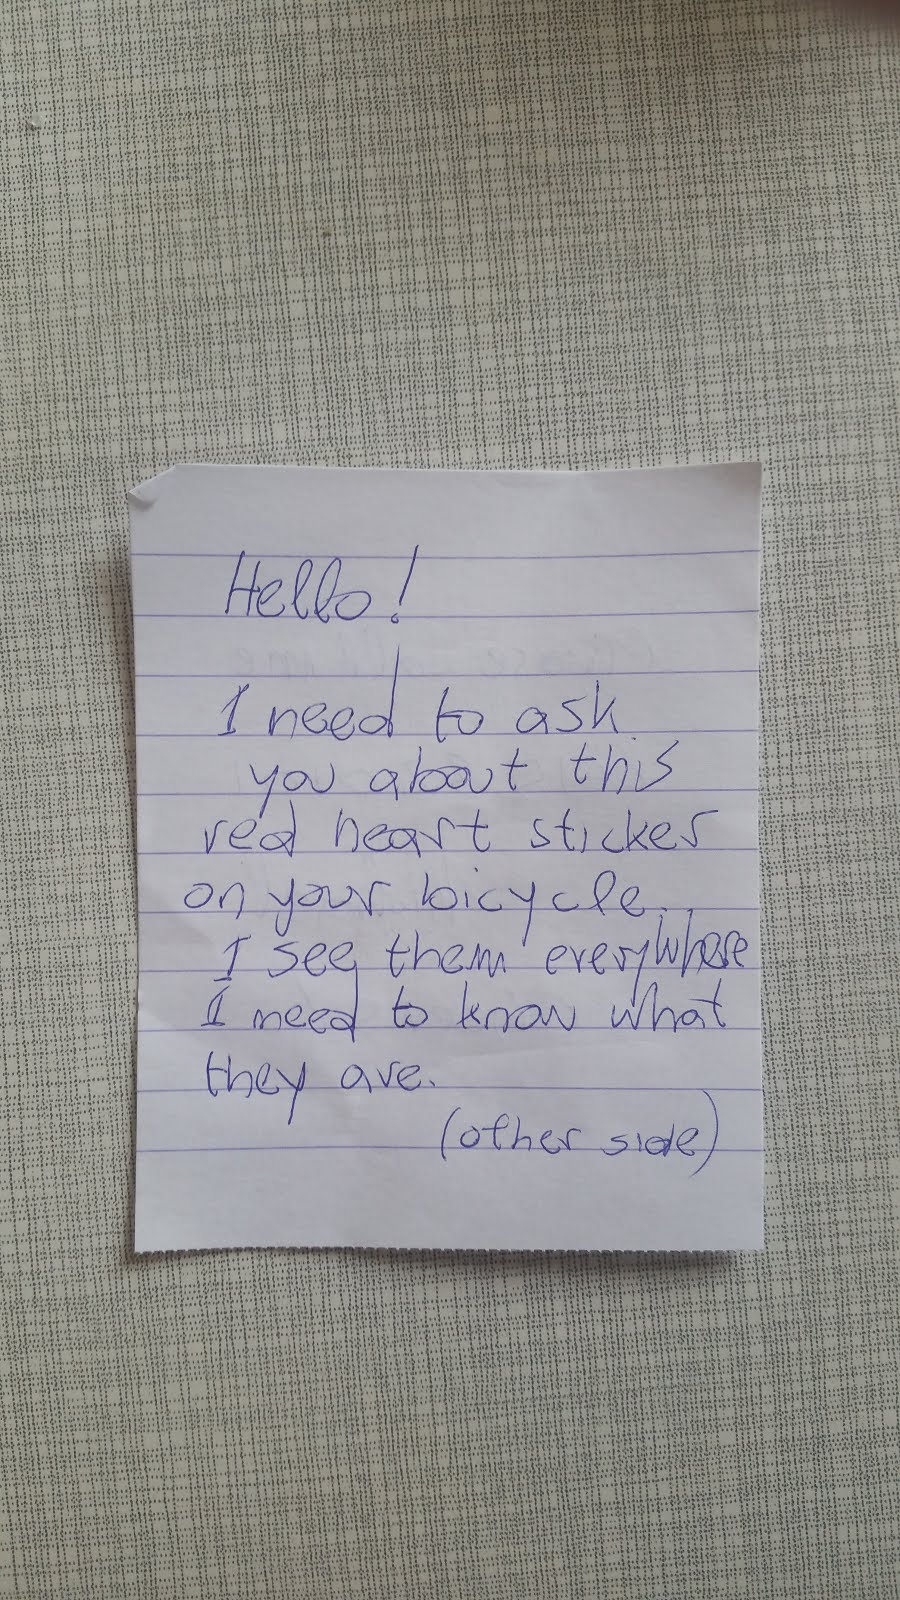 Hello!
I need to ask
you about this
red heart sticker
on your bicycle.
I see them everywhere
I need to know what
they are.
(other side)